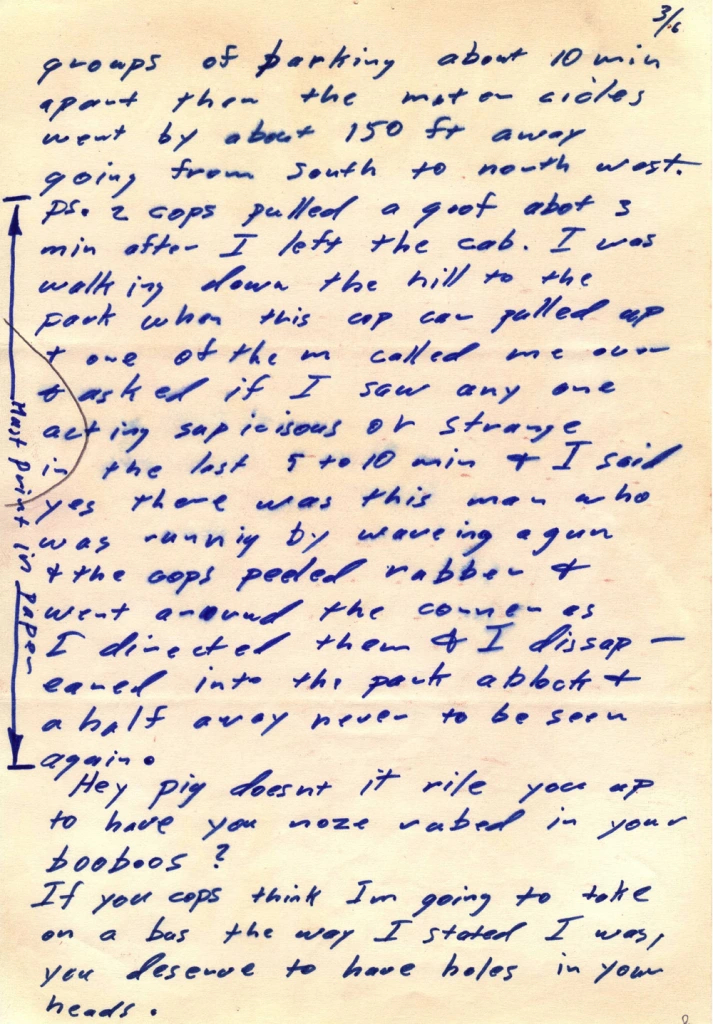 3/6
groups of barking about 10 min
apart then the motor cicles
went by about 150 ft away
going from south to north west.
ps. 2 cops pulled a goof abot 3
min after I left the cab. I was
walking down the hill to the
park when this cop car pulled up
+ one of them called me over
+ asked if I saw any one
acting sapicisous or strange
in the last 5 to 10 min + I said
yes there was this man who
was runnig by waveing a gun
& the cops peeled rubber +
went around the corner as
I directed them + I dissap—
eared into the park a block +
a half away never to be seen
again.
Must print in paper
Hey pig doesnt it rile you up
to have you noze rubed in your
booboos ?
If you cops think Im going to take
on a bus the way I stated I was,
you deserve to have holes in your
heads.